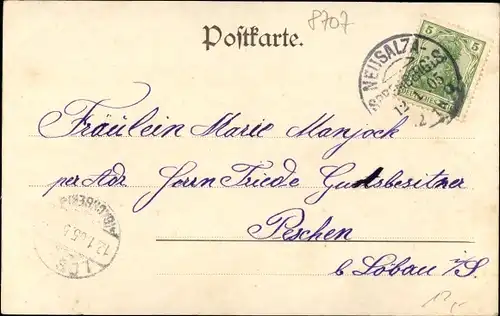 8707
Postkarte.
5 5
NEUSALZA-S.
05
12
Fräulein Marie Manjock
per Adr Herrn Friede Gutsbesitzer
Peschen
b Löbau i/S.
12.1.05